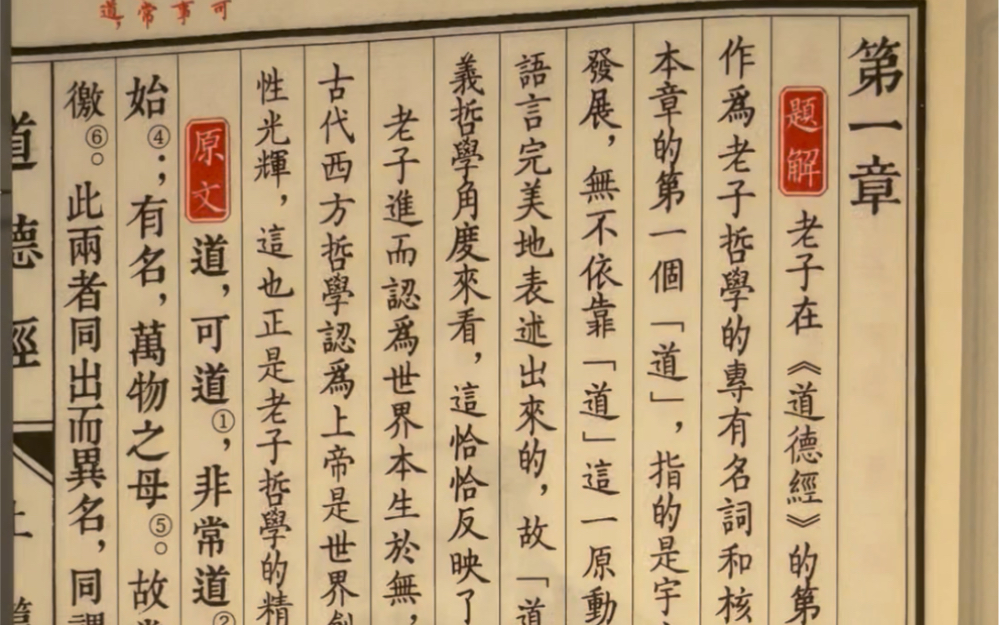 第一章
題解 老子在《道德經》的第
作爲老子哲學的專有名詞和核
本章的第一個「道」，指的是宇
發展，無不依靠「道」這一原動
語言完美地表述出來的，故「道
義哲學角度來看，這恰恰反映了
老子進而認爲世界本生於無，
古代西方哲學認爲上帝是世界創
性光輝，這也正是老子哲學的精
原文 道，可道①，非常道②
始④；有名，萬物之母⑤。故常
徼⑥。此兩者同出而異名，同謂
道德經
可事常道，